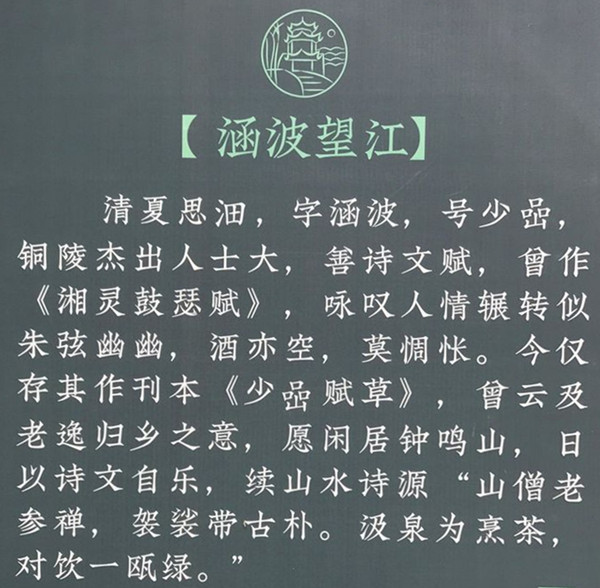 【涵波望江】
清夏思沺，字涵波，号少嵒，
铜陵杰出人士大，善诗文赋，曾作
《湘灵鼓瑟赋》，咏叹人情辗转似
朱弦幽幽，酒亦空，莫惆怅。今仅
存其作刊本《少嵒赋草》，曾云及
老逸归乡之意，愿闲居钟鸣山，日
以诗文自乐，续山水诗源“山僧老
参禅，袈裟带古朴。汲泉为烹茶，
对饮一瓯绿。”